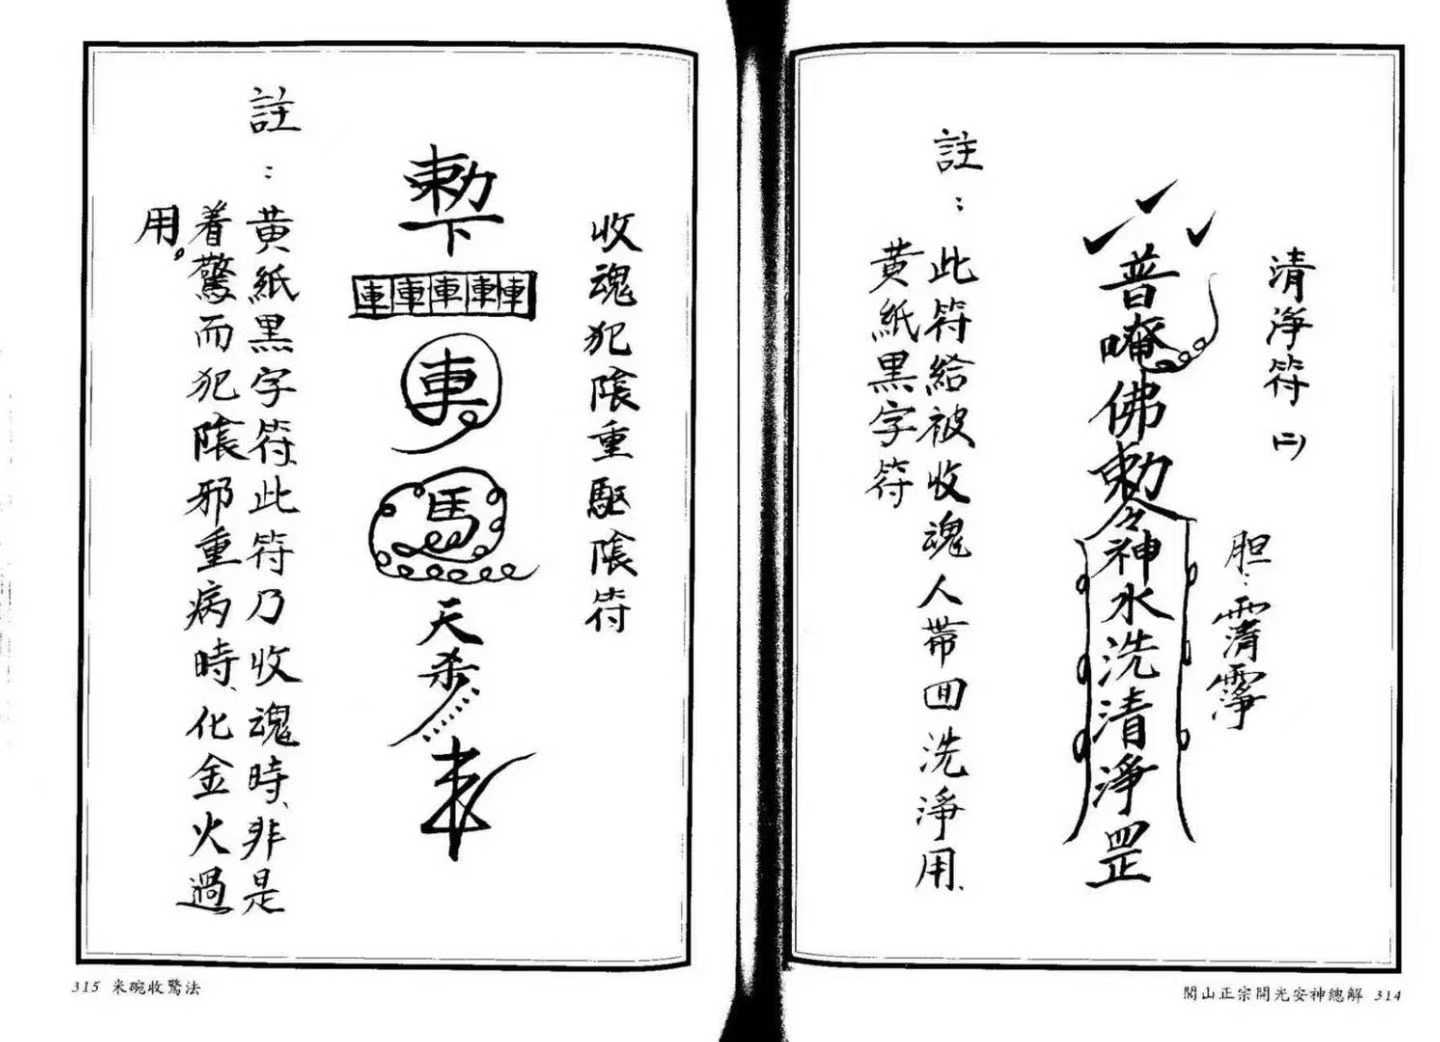 清淨符(二)
胆：
普唵佛敕令神水洗清淨罡
註：此符給被收魂人帶回洗淨用、
黃紙黑字符
閭山正宗開光安神總解 314
收魂犯陰重驅陰符
敕下
車車車車車
車
馬
天杀
註：黃紙黑字符、此符乃收魂時、非是
着驚而犯陰邪重病時、化金火過
用。
315 米碗收驚法